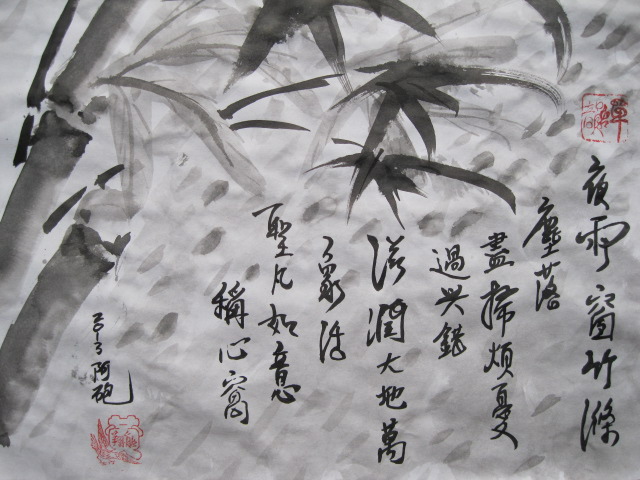 夜雨窗竹滌
塵落
盡掃煩憂
過與錯
滋潤大地萬
象活
聖凡如意
稱心窩
阿砲